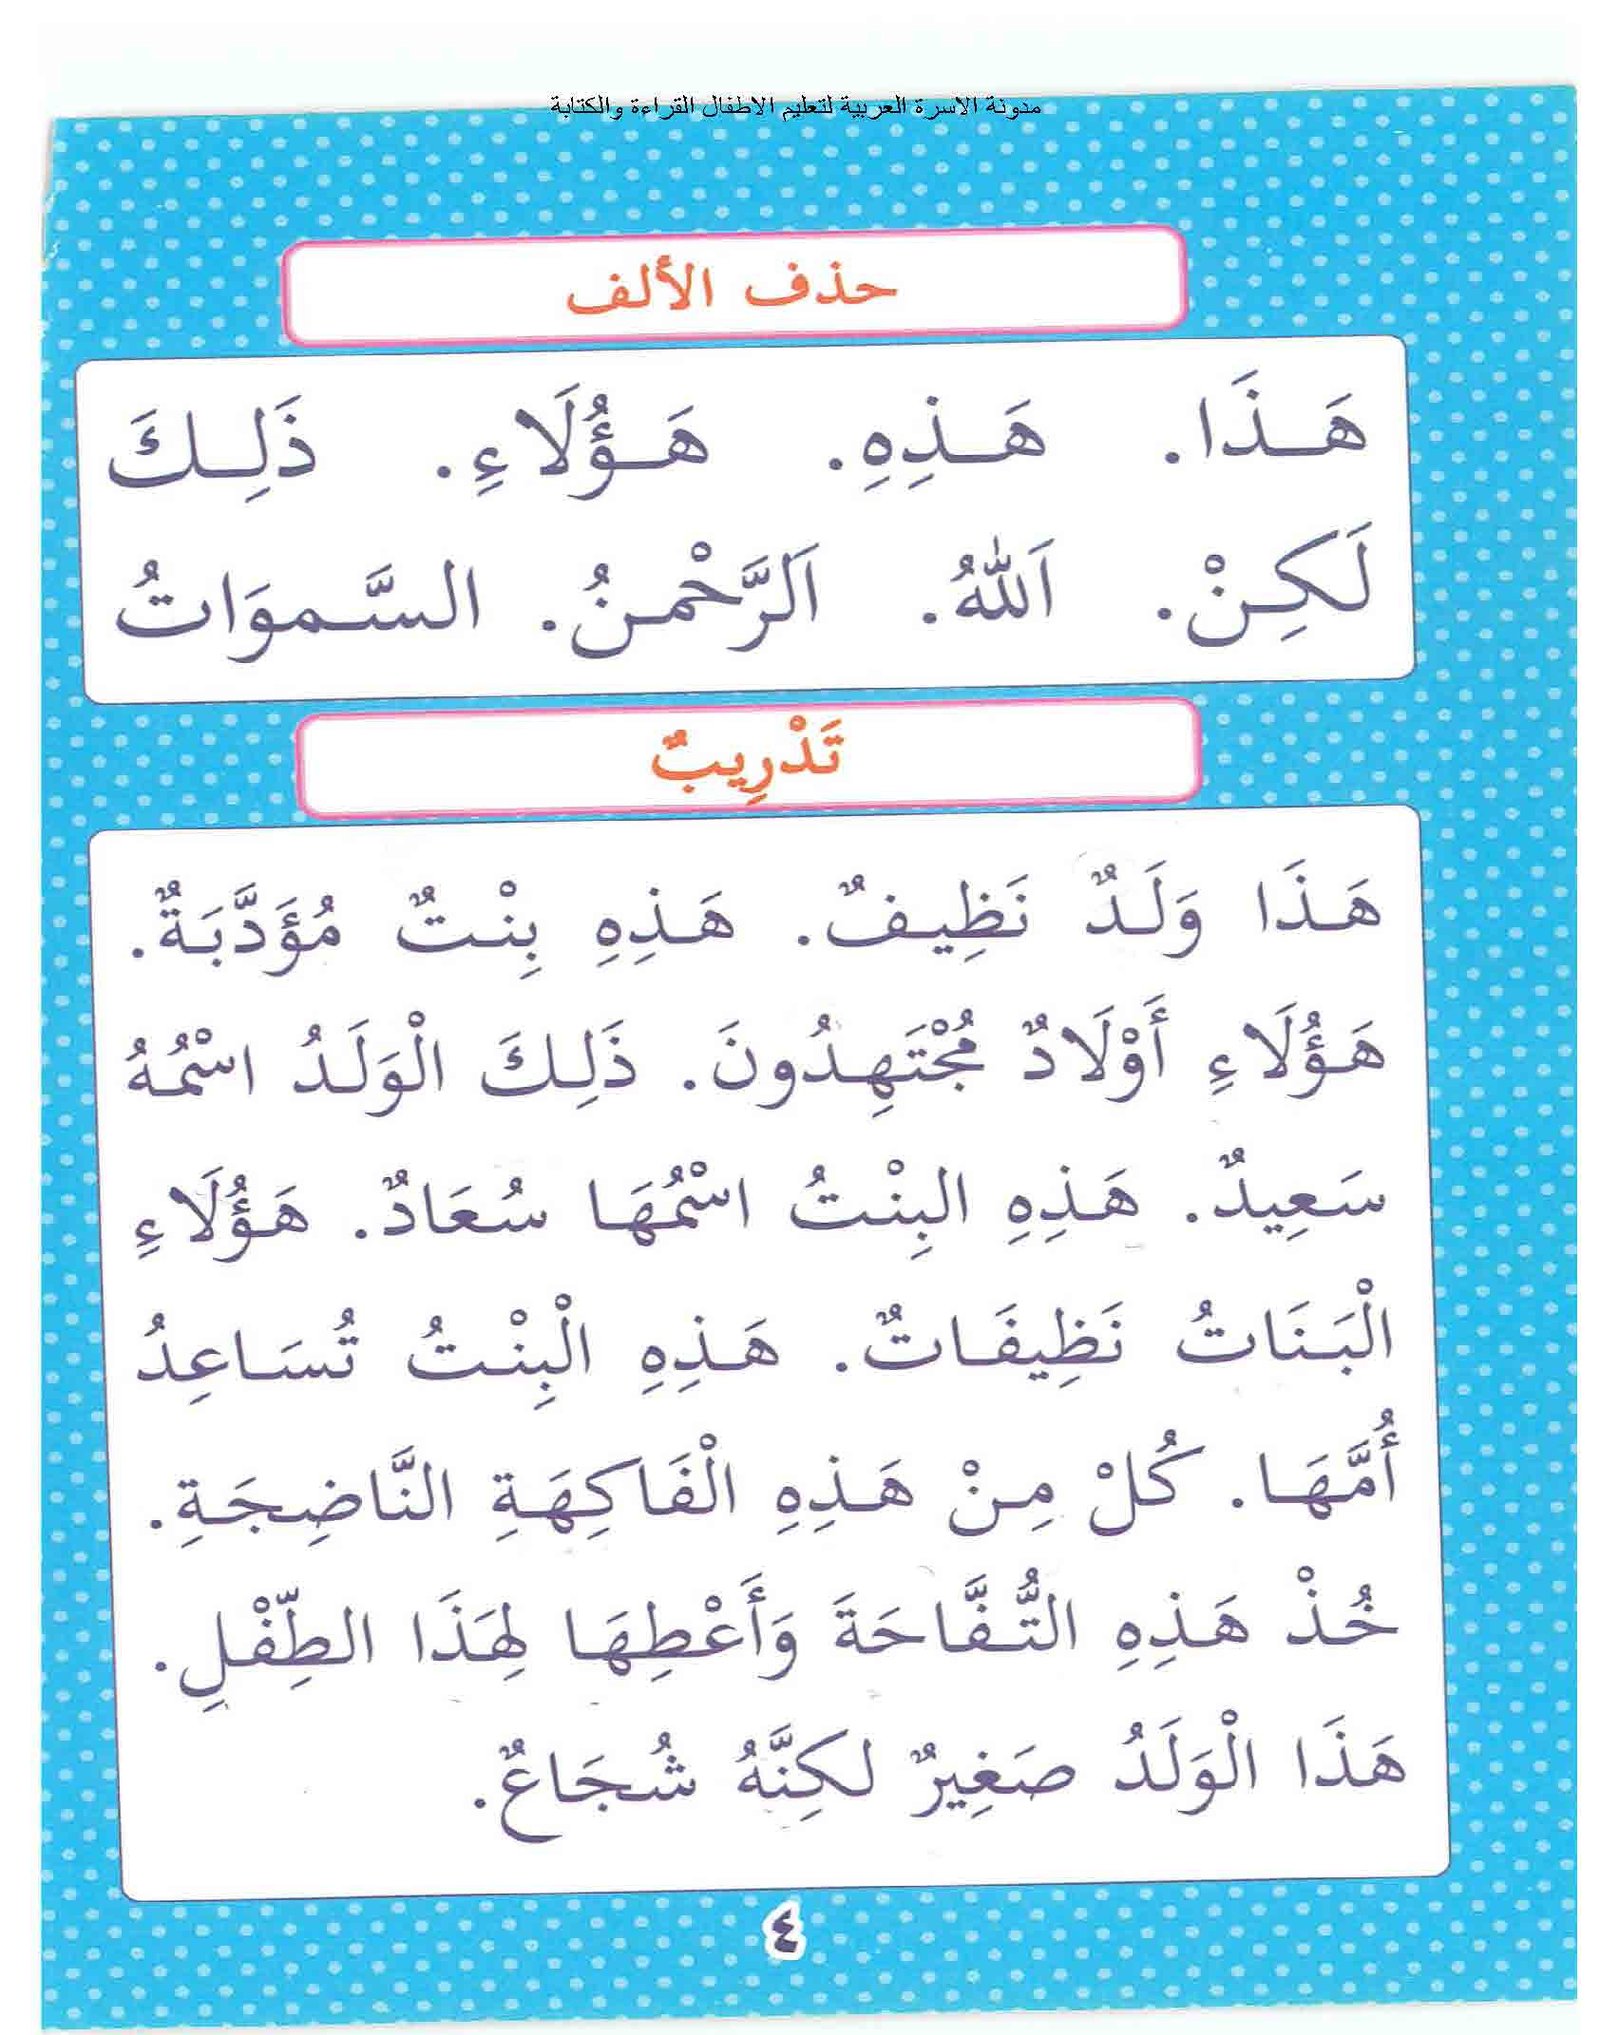 مدونة الاسرة العربية لتعليم الاطفال القراءة والكتابة
حذف الألف
هَـذَا. هَـذِهِ. هَـؤُلَاءِ. ذَلِـكَ
لَكِـنْ. اَللّٰهُ. اَلرَّحْمنُ. السَّـموَاتُ
تَدْرِيبٌ
هَـذَا وَلَـدٌ نَظِيـفٌ. هَـذِهِ بِنْـتٌ مُؤَدَّبَـةٌ.
هَـؤُلَاءِ أَوْلَادٌ مُجْتَهِـدُونَ. ذَلِـكَ الْوَلَـدُ اسْمُـهُ
سَـعِيدٌ. هَـذِهِ البِنْـتُ اسْمُهَـا سُـعَادٌ. هَـؤُلَاءِ
الْبَـنَاتُ نَظِيفَـاتٌ. هَـذِهِ الْبِنْـتُ تُسَـاعِدُ
أُمَّهَـا. كُلْ مِـنْ هَـذِهِ الْفَاكِهَـةِ النَّاضِجَـةِ.
خُـذْ هَـذِهِ التُّـفَّاحَةَ وَأَعْطِهَـا لِهَذَا الطِّفْلِ.
هَـذَا الْوَلَدُ صَغِيرٌ لكِنَّهُ شُـجَاعٌ.
٤